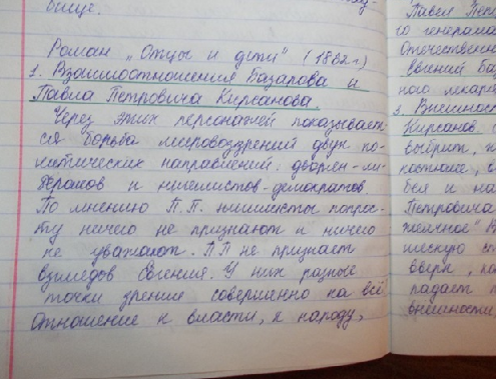 бище.
Роман „Отцы и дети" (1862 г.)
1. Взаимоотношения Базарова и
Павла Петровича Кирсанова.
Через этих персонажей показывает-
ся борьба мировоззрений двух по-
литических направлений: дворян-ли-
бералов и нигилистов-демократов.
По мнению П.П. нигилисты попрос-
ту ничего не признают и ничего
не уважают. ПП не признаёт
взглядов Евгения. У них разные
точки зрение совершенно на всё
отношение к власти, к народу,
Павел Пет
го генерала
Отечественн
Евгений Ба
ного лекаря
2. Внешност
Кирсанов
выбрит, н
костюме,
бся и на
Петровича
желчное"
ческую
вверх,
падает
внешности